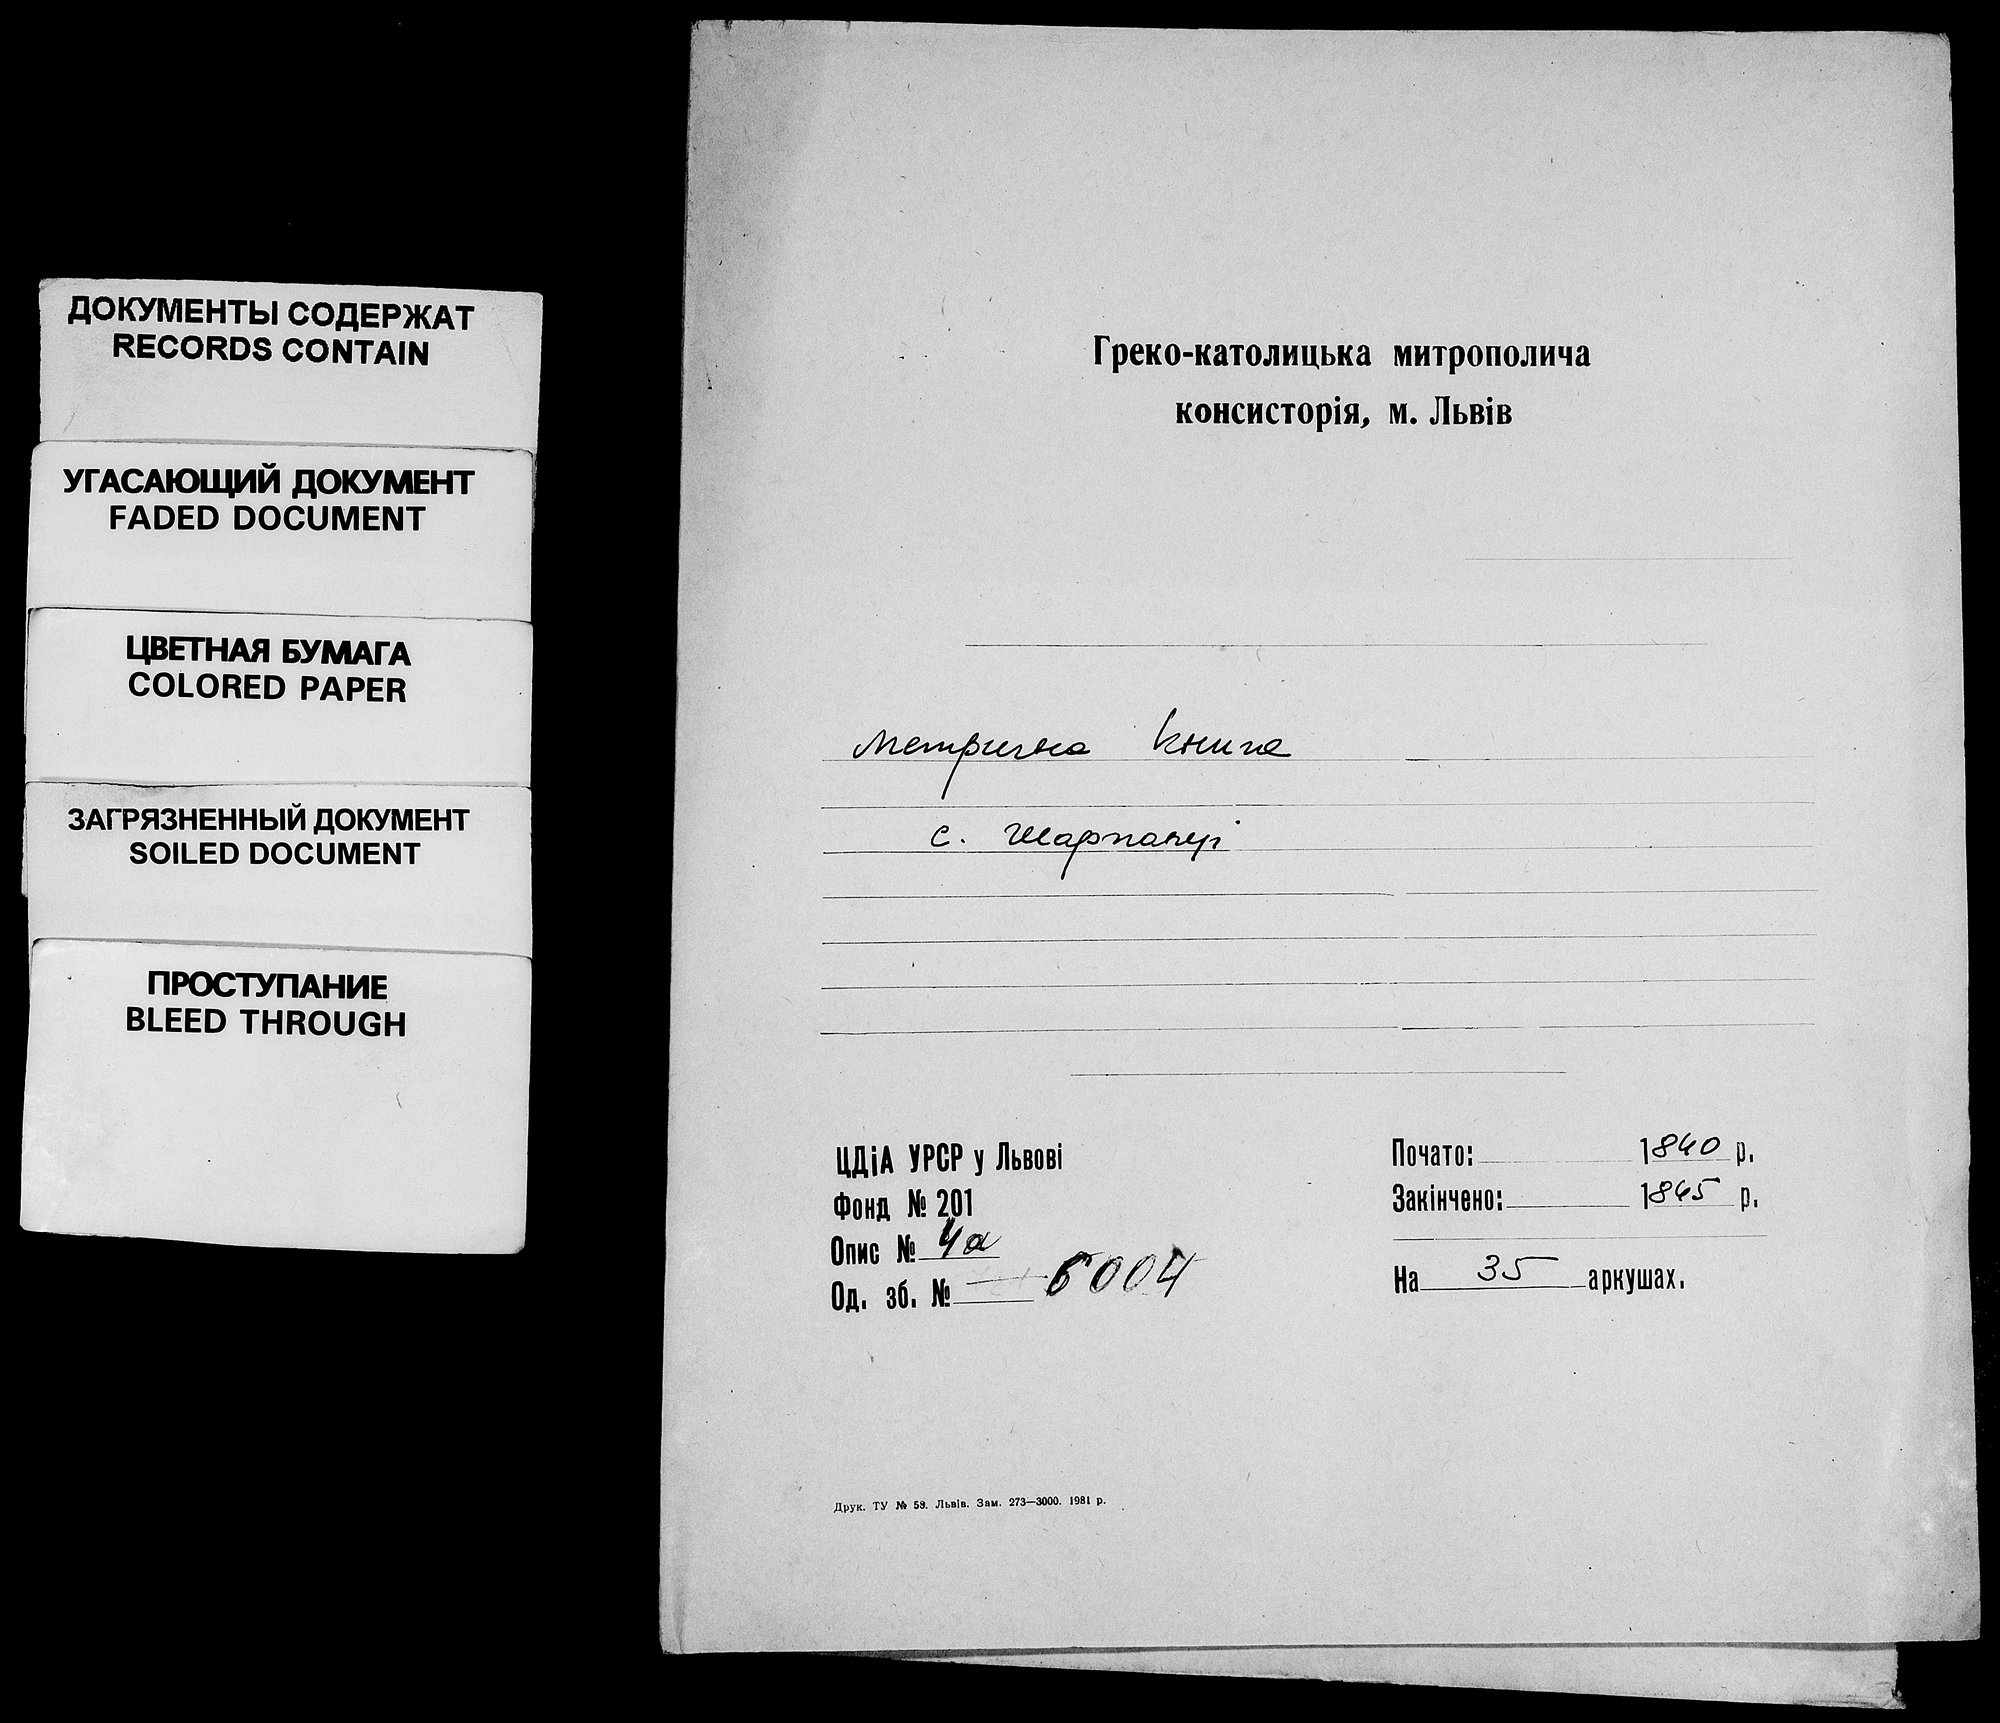 ДОКУМЕНТЫ СОДЕРЖАТ
RECORDS CONTAIN
УГАСАЮЩИЙ ДОКУМЕНТ
FADED DOCUMENT
ЦВЕТНАЯ БУМАГА
COLORED PAPER
ЗАГРЯЗНЕННЫЙ ДОКУМЕНТ
SOILED DOCUMENT
ПРОСТУПАНИЕ
BLEED THROUGH
Греко-католицька митрополича
консисторія, м. Львів
Метрична книга
с. Шарпанці
ЦДіА УРСР у Львові
Фонд № 201
Опис № 4а
Од. зб. № 6004
Почато: 1840 р.
Закінчено: 1845 р.
На 35 аркушах.
Друк. ТУ № 58. Львів. Зам. 273—3000. 1981 р.